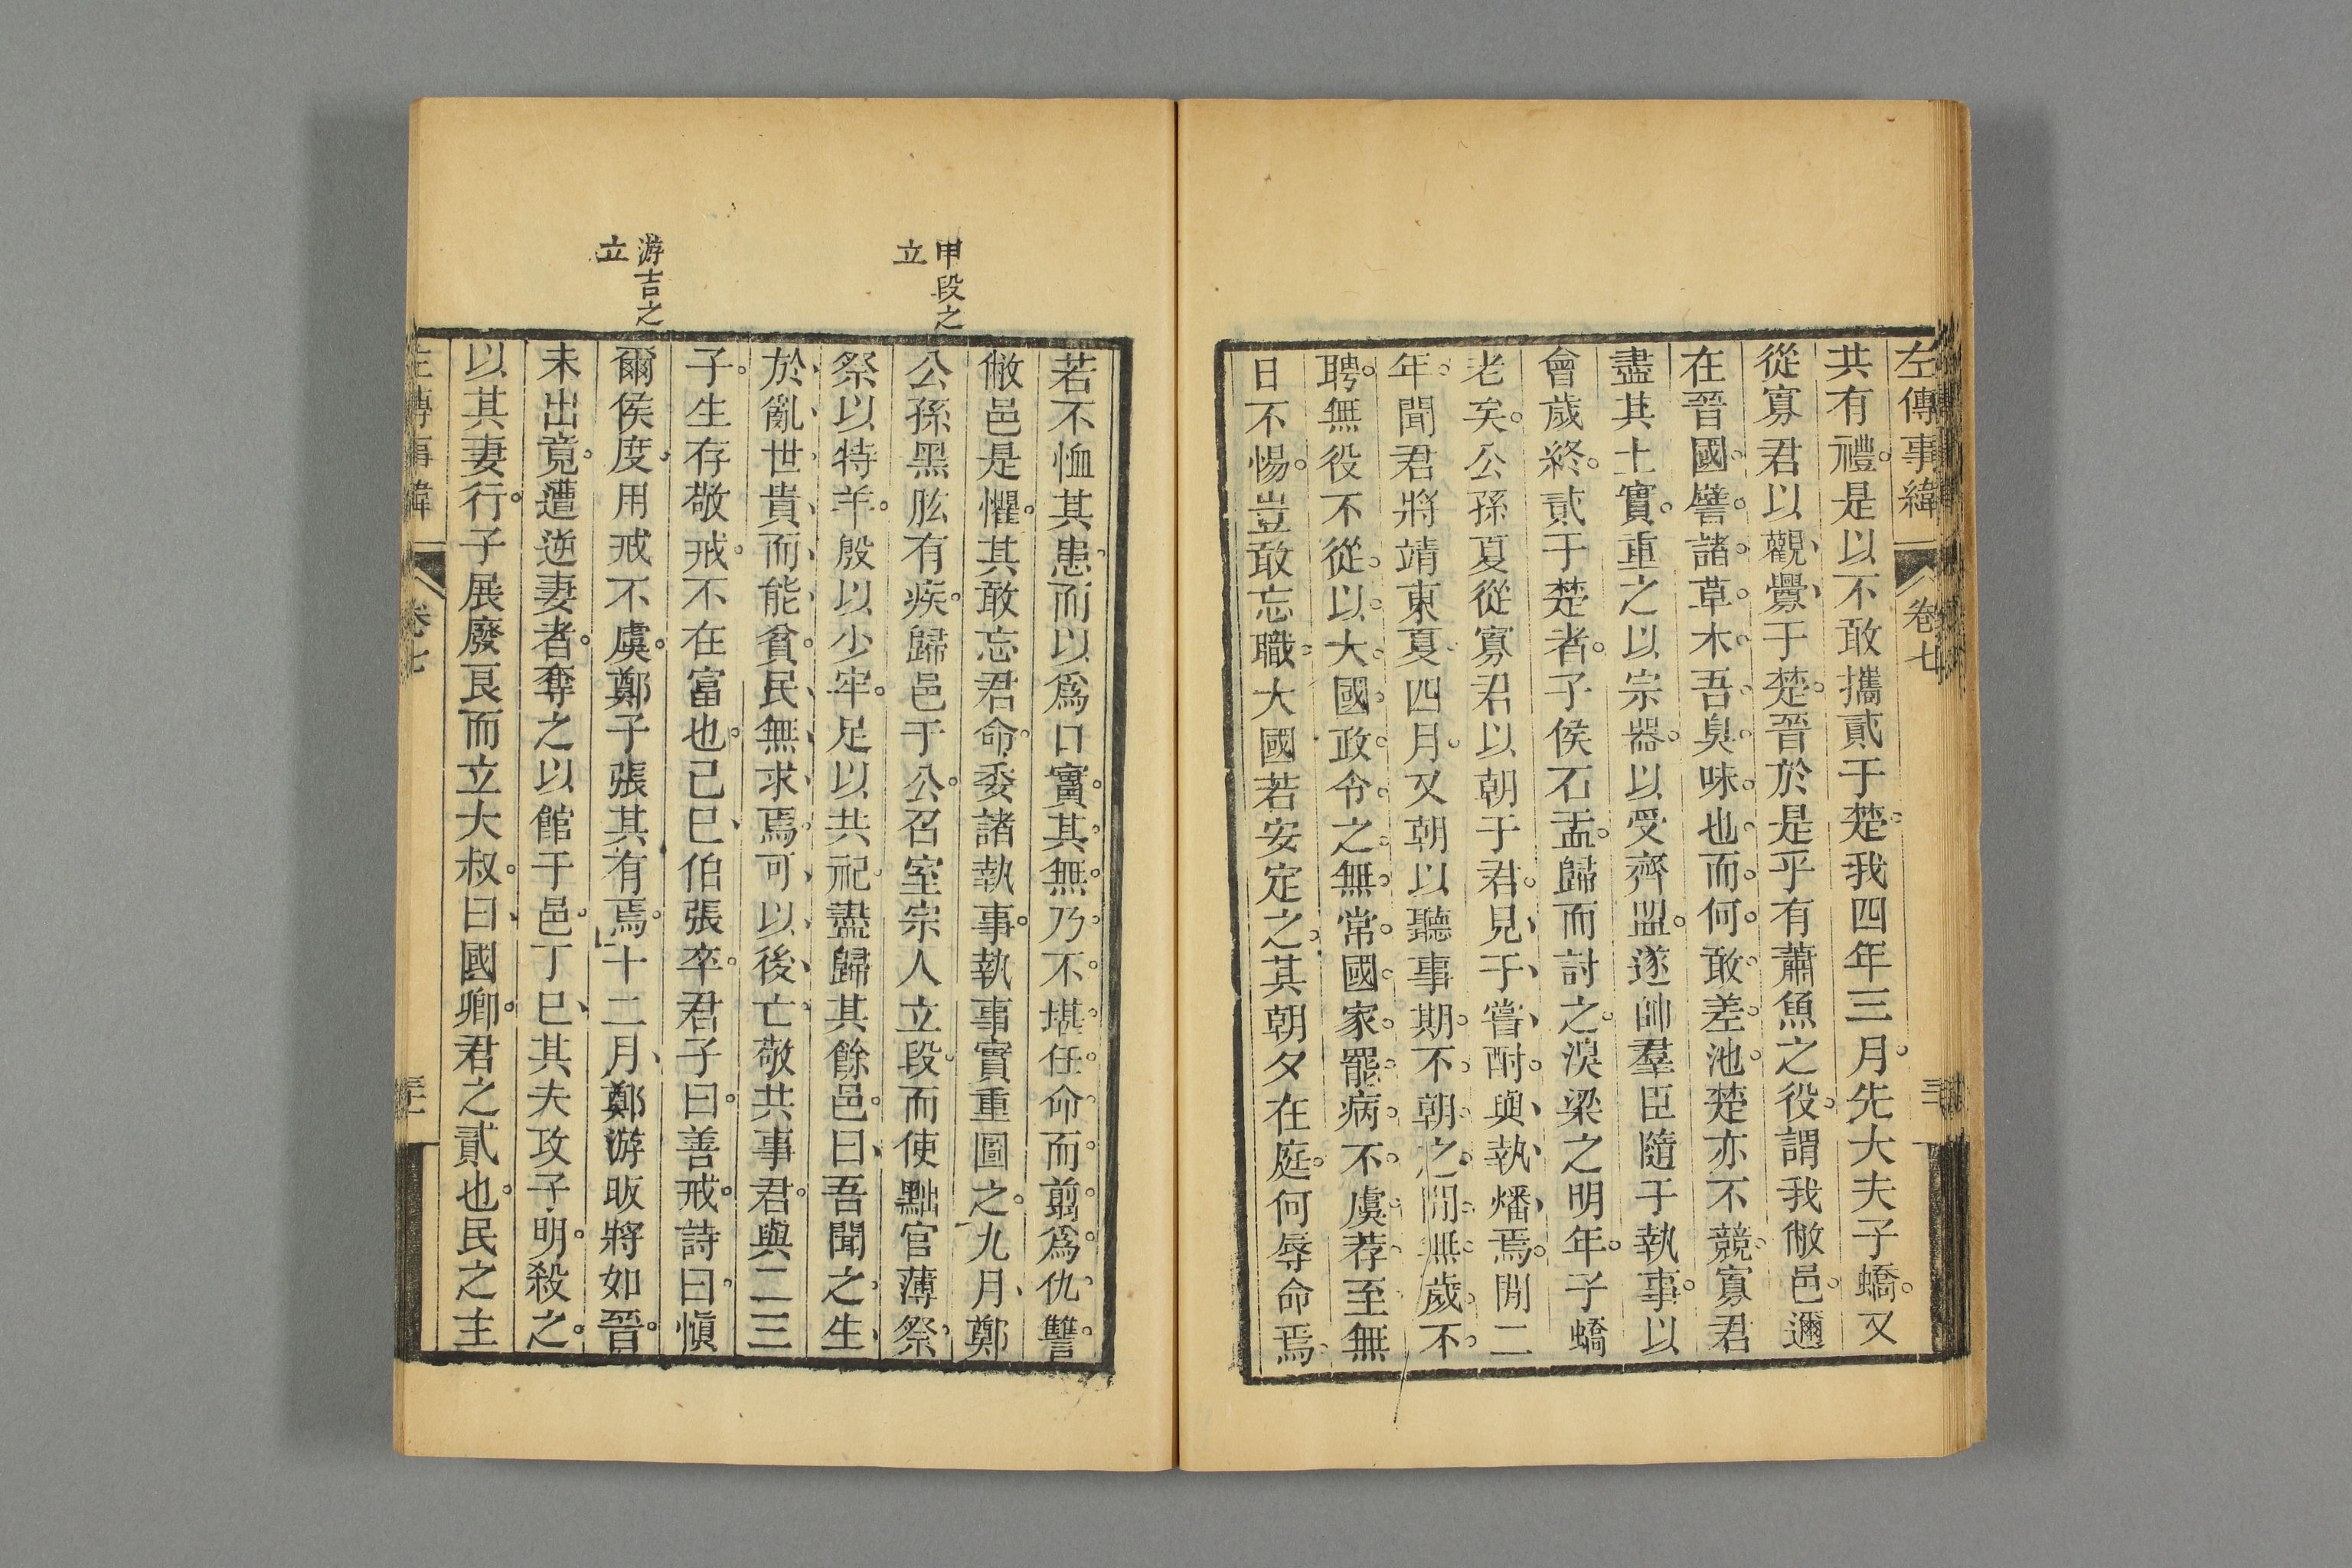 左傳事緯 卷七
共有禮是以不敢攜貳于楚我四年三月先大夫子蟜又
從寡君以觀釁于楚晉於是乎有蕭魚之役謂我敝邑邇
在晉國譬諸草木吾臭味也而何敢差池楚亦不競寡君
盡其土實重之以宗器以受齊盟遂帥羣臣隨于執事以
會歲終貳于楚者子侯石盂歸而討之湨梁之明年子蟜
老矣公孫夏從寡君以朝于君見于嘗酎與執燔焉閒二
年聞君將靖東夏四月又朝以聽事期不朝之閒無歲不
聘無役不從以大國政令之無常國家罷病不虞荐至無
日不惕豈敢忘職大國若安定之其朝夕在庭何辱命焉
若不恤其患而以爲口實其無乃不堪任命而翦爲仇讐
敝邑是懼其敢忘君命委諸執事執事實重圖之九月鄭
甲段之
立
公孫黑肱有疾歸邑于公召室宗人立段而使黜官薄祭
祭以特羊殷以少牢足以共祀盡歸其餘邑曰吾聞之生
於亂世貴而能貧民無求焉可以後亡敬共事君與二三
子生存敬戒不在富也己巳伯張卒君子曰善戒詩曰愼
游吉之
立
爾侯度用戒不虞鄭子張其有焉十二月鄭游昄將如晉
未出竟遭逆妻者奪之以館于邑丁巳其夫攻子明殺之
以其妻行子展廢良而立大叔曰國卿君之貳也民之主
左傳事緯 卷七